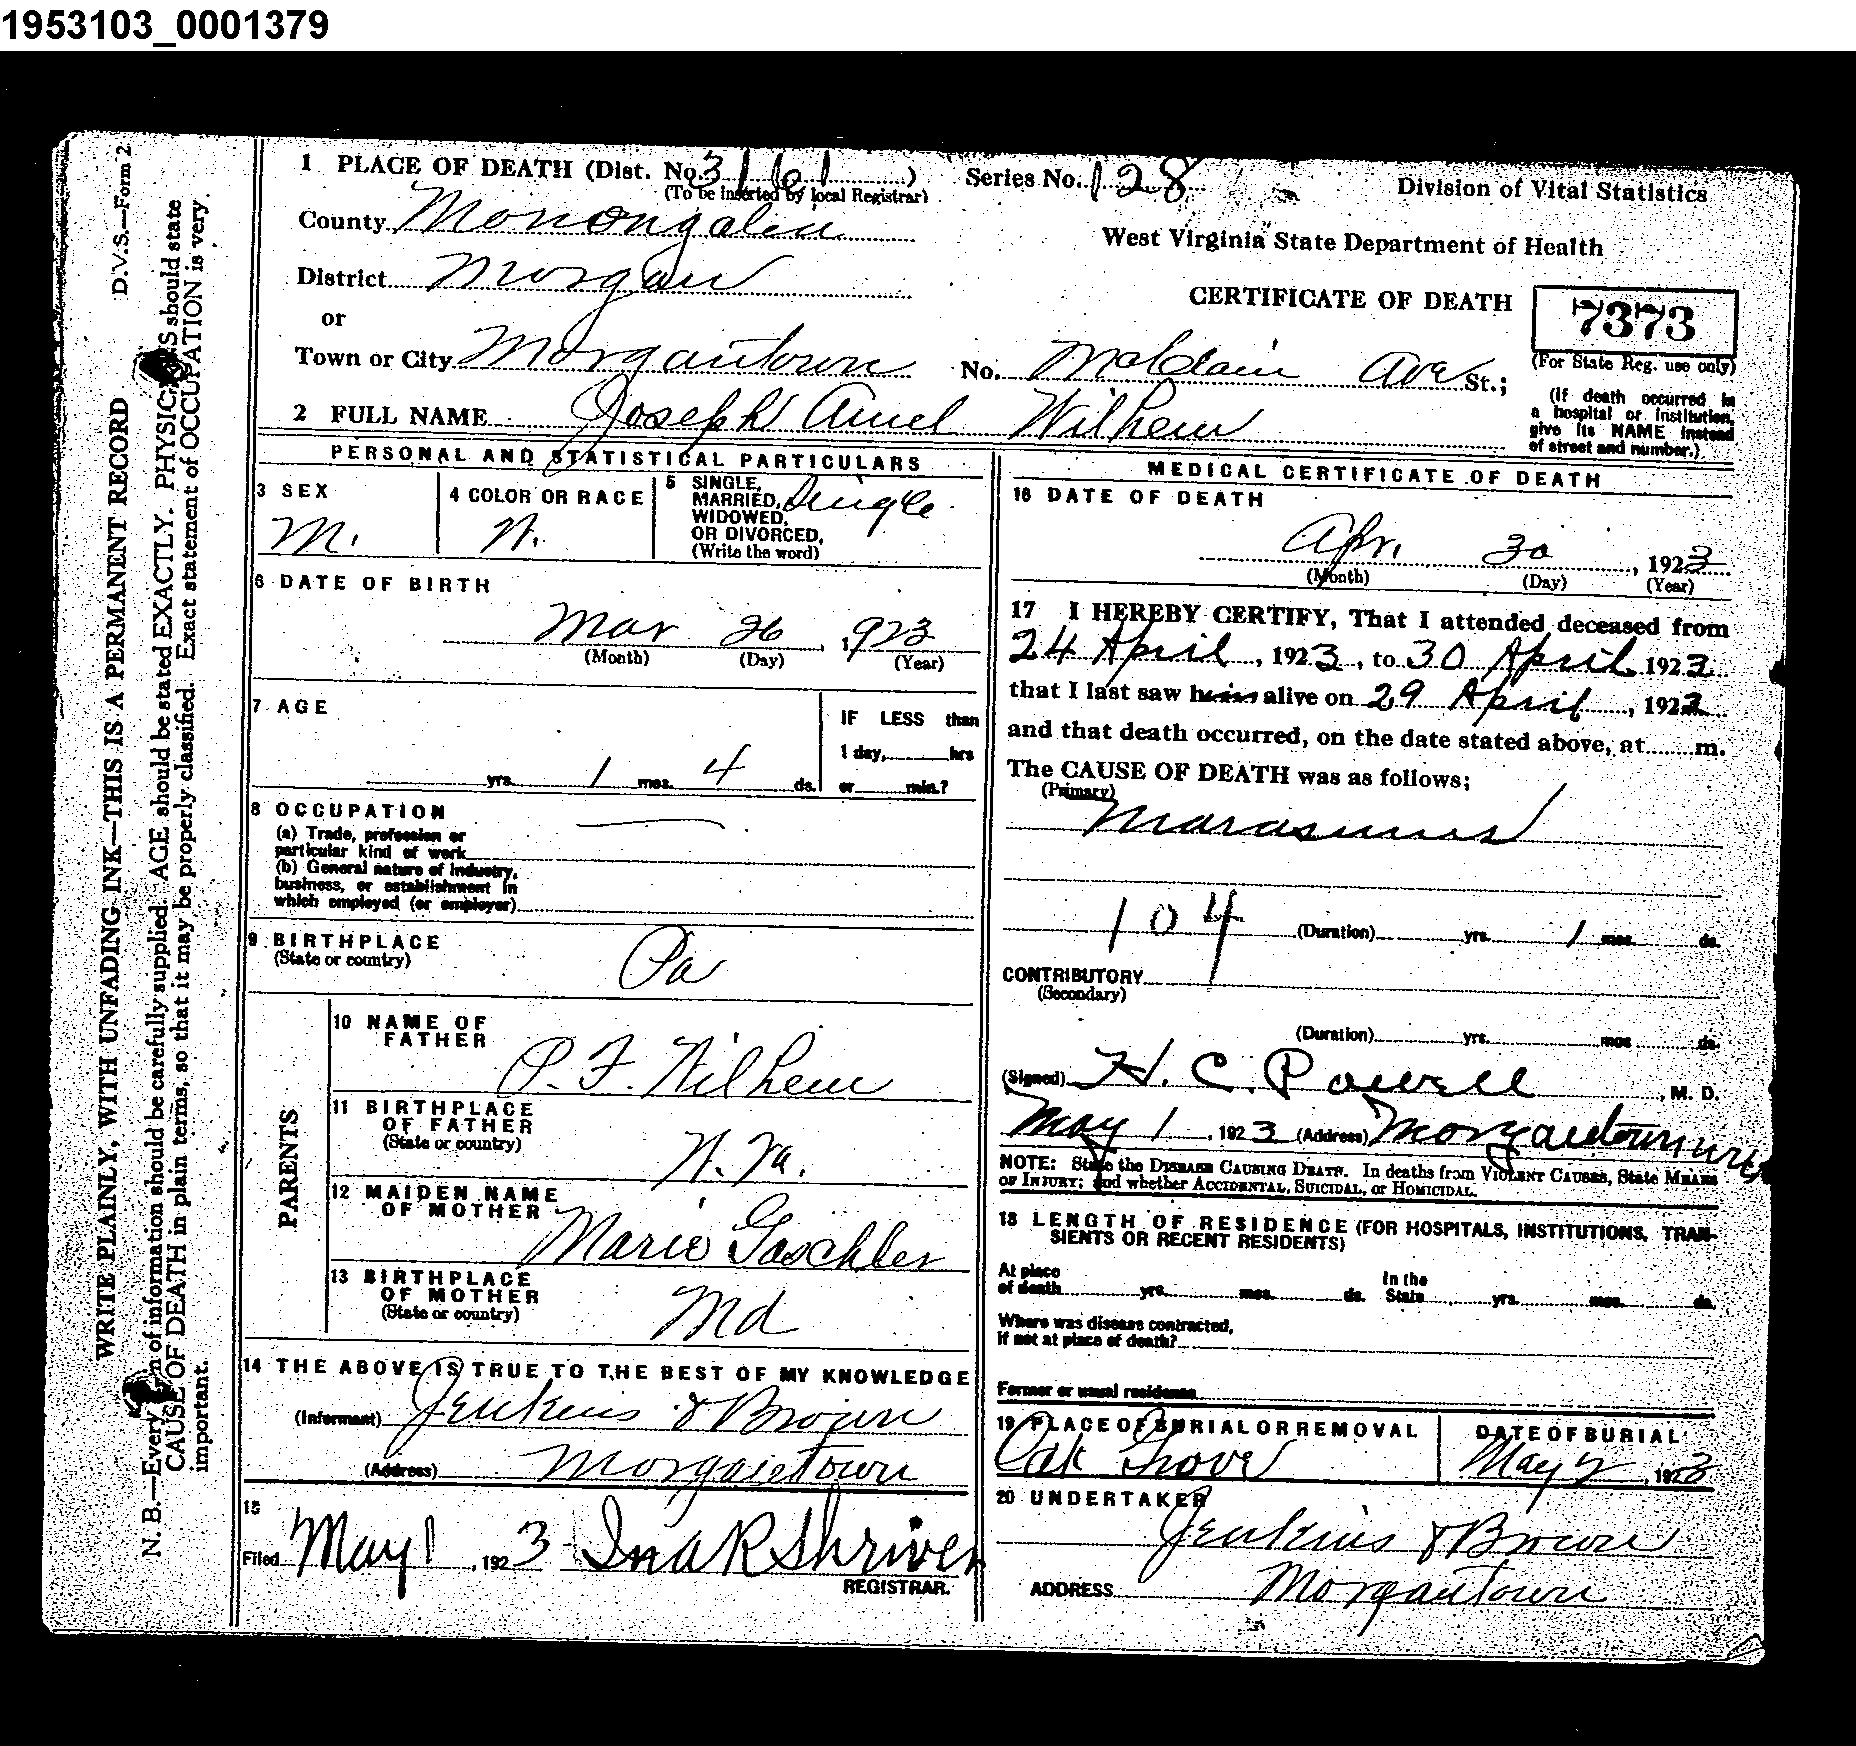 1953103_0001379
D.V.S.—Form 2
WRITE PLAINLY, WITH UNFADING INK—THIS IS A PERMANENT RECORD
N. B.—Every of information should be carefully supplied. AGE should be stated EXACTLY. PHYSICIANS should state
CAUSE OF DEATH in plain terms, so that it may be properly classified. Exact statement of OCCUPATION is very
important.
1 PLACE OF DEATH (Dist. No. 3161)
(To be inserted by local Registrar)
Series No. 128
Division of Vital Statistics
County Monongalia
West Virginia State Department of Health
District Morgan
CERTIFICATE OF DEATH
7373
(For State Reg. use only)
or
Town or City Morgantown No. McLain Ave St.;
(If death occurred in
a hospital or institution,
give its NAME instead
of street and number.)
2 FULL NAME Joseph Wilhem
PERSONAL AND STATISTICAL PARTICULARS
3 SEX
M.
4 COLOR OR RACE
W.
5 SINGLE,
MARRIED,
WIDOWED,
OR DIVORCED,
(Write the word)
Single
6 DATE OF BIRTH
Mar 26, 1923
(Month) (Day) (Year)
7 AGE
yrs. 1 mos. 4 ds.
IF LESS than
1 day, hrs
or min.?
8 OCCUPATION
(a) Trade, profession or
particular kind of work
(b) General nature of industry,
business, or establishment in
which employed (or employer)
9 BIRTHPLACE
(State or country)
Pa
PARENTS
10 NAME OF
FATHER
P. F. Wilhem
11 BIRTHPLACE
OF FATHER
(State or country)
W. Va.
12 MAIDEN NAME
OF MOTHER
Marie Gaschler
13 BIRTHPLACE
OF MOTHER
(State or country)
Md
14 THE ABOVE IS TRUE TO THE BEST OF MY KNOWLEDGE
(Informant) Jenkins & Brown
(Address) Morgantown
15
Filed May 1, 1923 Ina R Shriver
REGISTRAR.
MEDICAL CERTIFICATE OF DEATH
16 DATE OF DEATH
Apr. 30, 1923
(Month) (Day) (Year)
17 I HEREBY CERTIFY, That I attended deceased from
24 April, 1923, to 30 April 1923
that I last saw him alive on 29 April, 1923
and that death occurred, on the date stated above, at m.
The CAUSE OF DEATH was as follows;
(Primary)
Marasmus
104
(Duration) yrs. 1 mos. ds.
CONTRIBUTORY
(Secondary)
(Duration) yrs. mos. ds.
(Signed) H. C. Powell, M. D.
May 1, 1923 (Address) Morgantown WVa
NOTE: State the DISEASE CAUSING DEATH. In deaths from VIOLENT CAUSES, State MEANS
OF INJURY; and whether ACCIDENTAL, SUICIDAL, or HOMICIDAL.
18 LENGTH OF RESIDENCE (FOR HOSPITALS, INSTITUTIONS, TRAN-
SIENTS OR RECENT RESIDENTS)
At place
of death yrs. mos. ds.
In the
State yrs. mos. ds.
Where was disease contracted,
if not at place of death?
Former or usual residence
19 PLACE OF BURIAL OR REMOVAL
Oak Grove
DATE OF BURIAL
May 2, 1923
20 UNDERTAKER
Jenkins & Brown
ADDRESS Morgantown